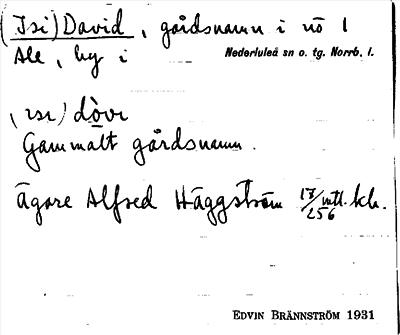 (Isi) David, gårdsnamn i nö 1
Ale, by i Nederluleå sn o. tg. Norrb. l.
(ısı) dòvı
Gammalt gårdsnamn.
Ägare Alfred Häggström 17/256 mtl. kh.
EDVIN BRÄNNSTRÖM 1931